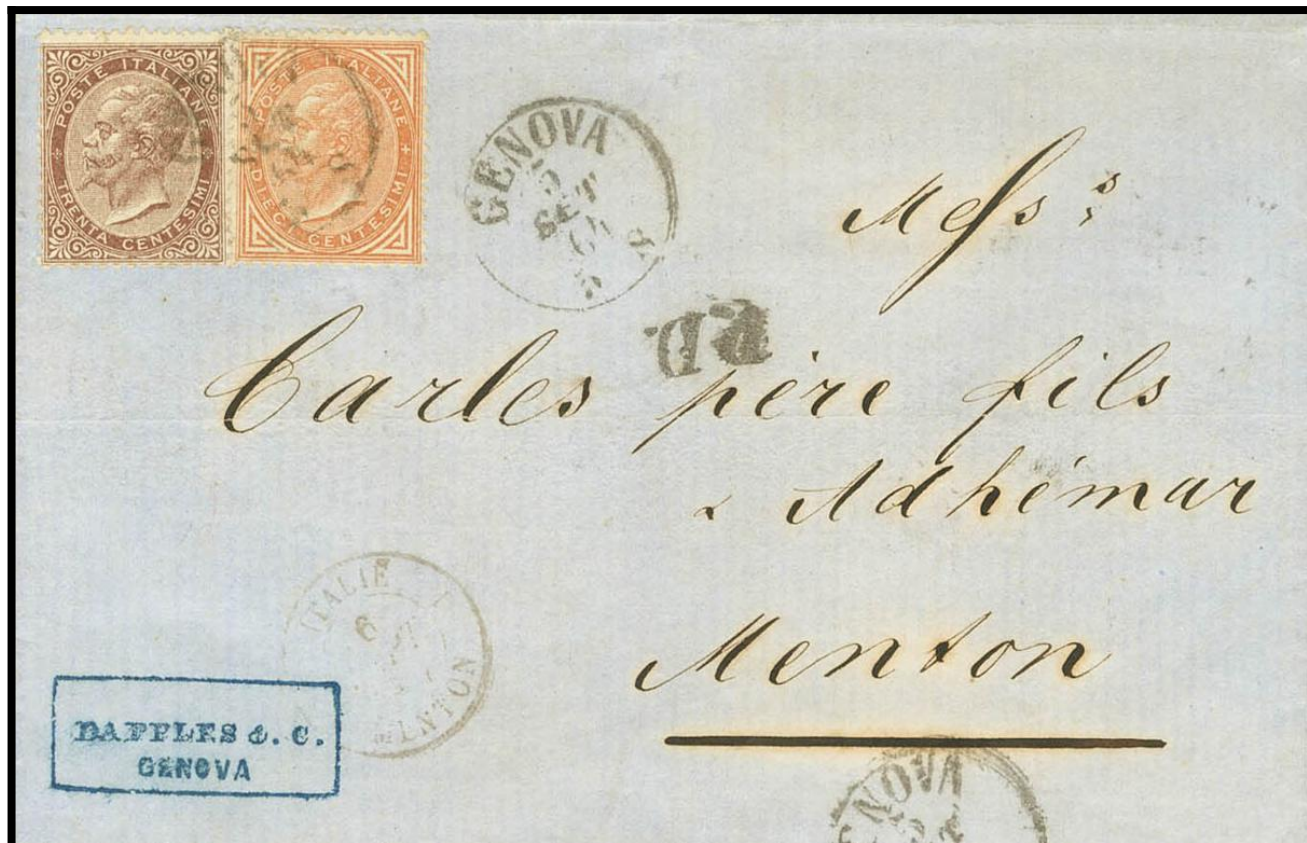 POSTE ITALIANE
TRENTA CENTESIMI
POSTE ITALIANE
DIECI CENTESIMI
GENOVA
5
SET
65
P.D.
Mess.s
Carles père fils
Adhémar
Menton
ITALIE
6
MENTON
DAPPLES & C.
GENOVA
GENOVA